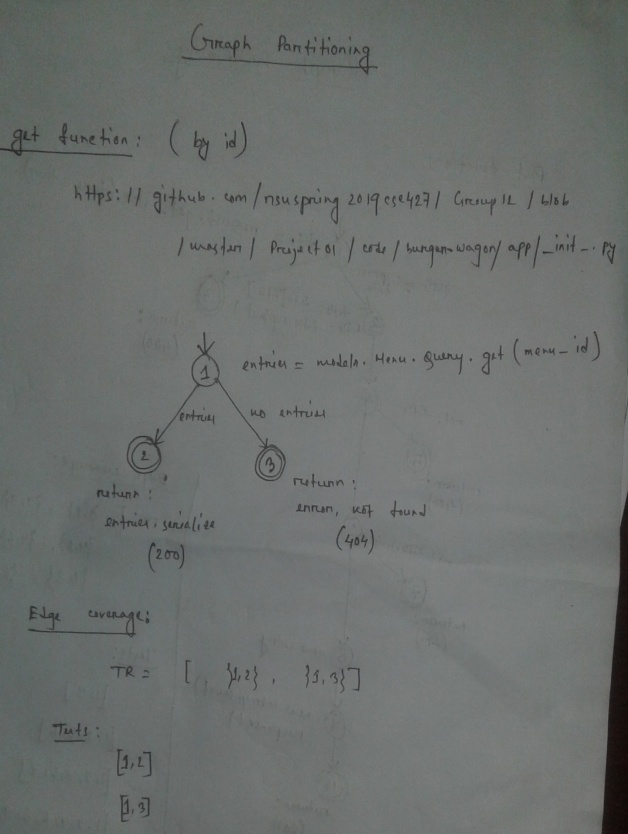 Graph Partitioning
get function: (by id)
https://github.com/nsuspring2019cse427/Group12/blob
/master/Project01/code/burger-wagon/app/__init__.py
1
entries = models.Menu.Query.get(menu_id)
entries
no entries
2
3
return:
entries.serialize
(200)
return:
error, not found
(404)
Edge coverage:
TR = [ {1,2}, {1,3} ]
Tests:
[1,2]
[1,3]